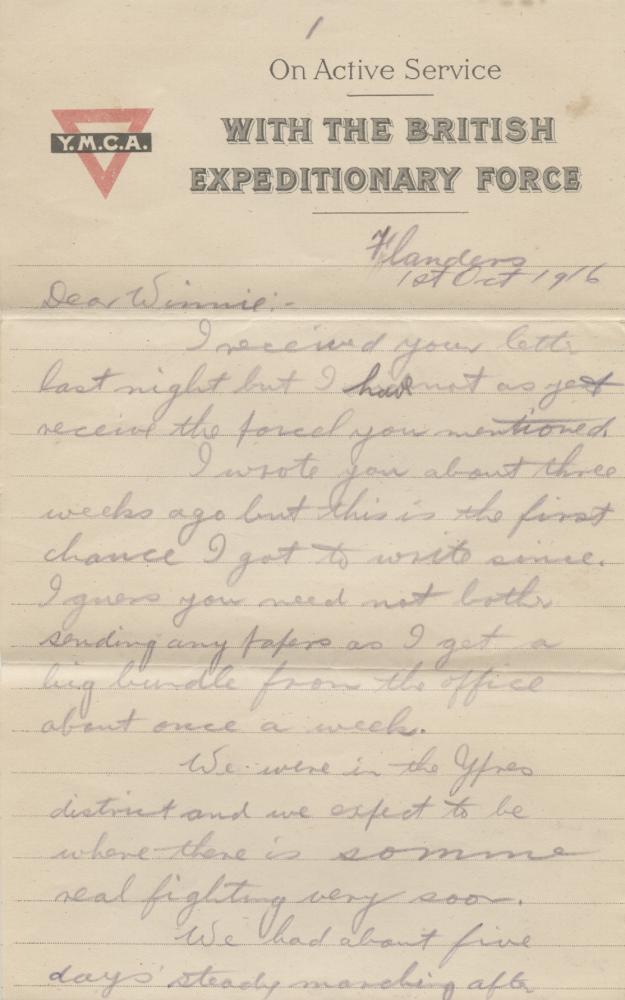 1
On Active Service
WITH THE BRITISH
EXPEDITIONARY FORCE
Y.M.C.A.
Flanders
1st Oct 1916
Dear Winnie:-
I received your letter
last night but I have not as yet
receive the parcel you mentioned.
I wrote you about three
weeks ago but this is the first
chance I got to write since.
I guess you need not bother
sending any papers as I get a
big bundle from the office
about once a week.
We were in the Ypres
district and we expect to be
where there is somme
real fighting very soon.
We had about five
days steady marching after